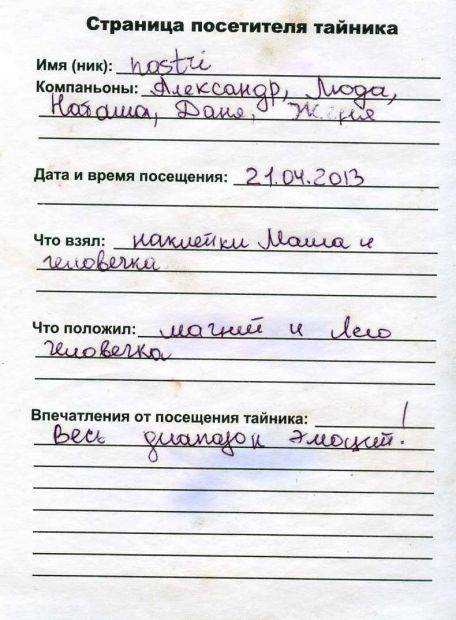 Страница посетителя тайника
Имя (ник): nastri
Компаньоны: Александр, Люда,
Наташа, Даня, Женя
Дата и время посещения: 21.04.2013
Что взял: наклейки Маша и
человечка
Что положил: магнит и Лего
человечка
Впечатления от посещения тайника:
Весь диапазон эмоций.